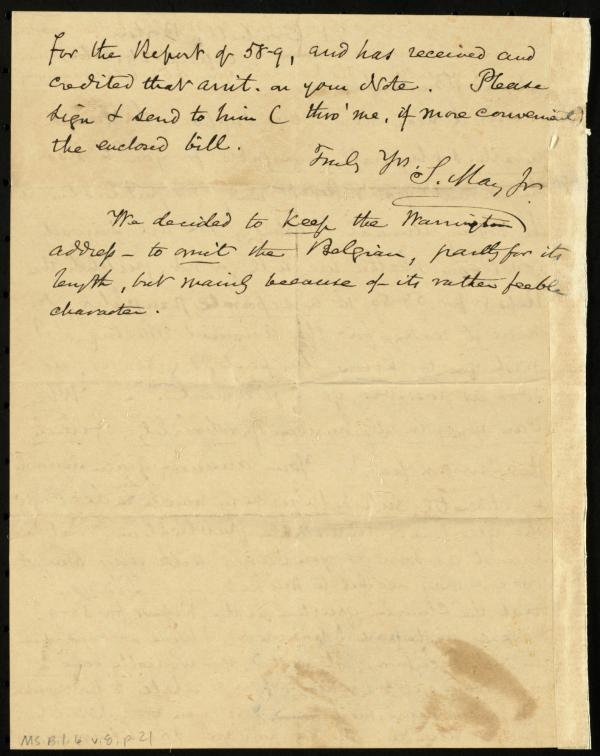 For the Report of 58-9, and has received and
credited that am't. on your Note. Please
sign & send to him (thro' me, if more convenient)
the enclosed bill.
Truly Yrs. S. May Jr.
We decided to keep the Warrington
address – to omit the Belgian, partly for its
length, but mainly because of its rather feeble
character.
MS. B.1.6 v.8, p.21